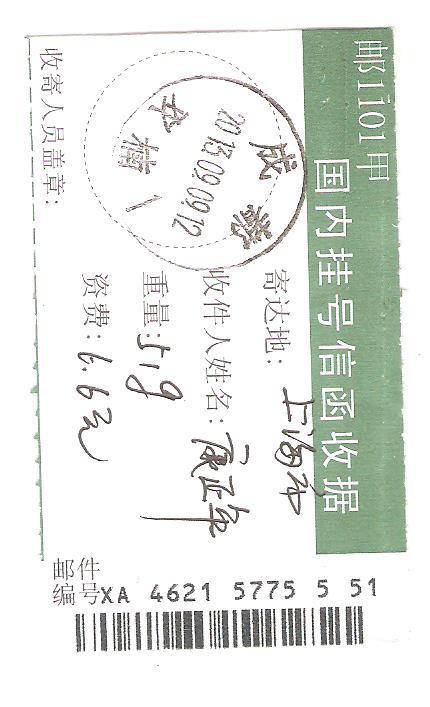 邮1101甲
国内挂号信函收据
寄达地: 上海市
收件人姓名: 康正军
重量: 51g
资费: 6.6元
收寄人员盖章:
成都
2013.09.09.12
邮件
编号XA 4621 5775 5 51